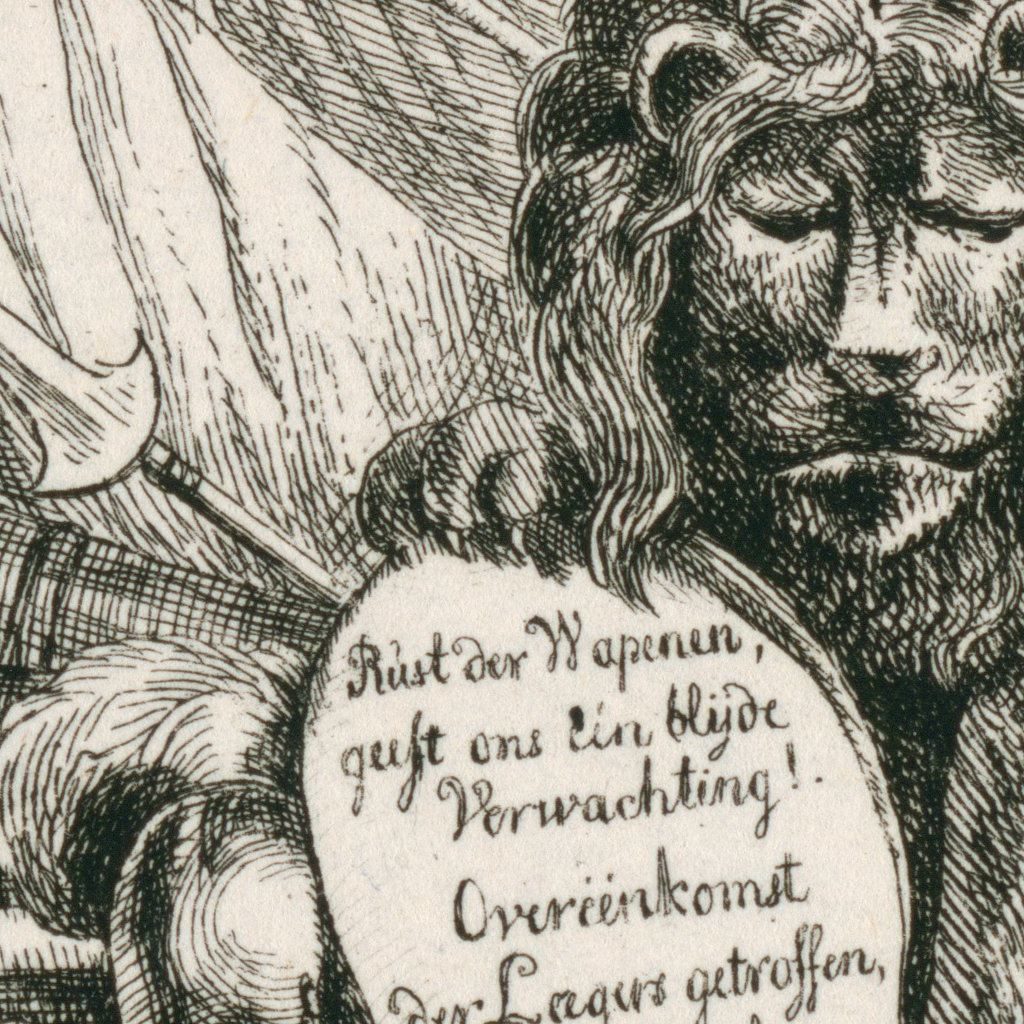 Rust der Wapenen,
geeft ons één blijde
Verwachting!
Overéénkomst
der Legers getroffen,